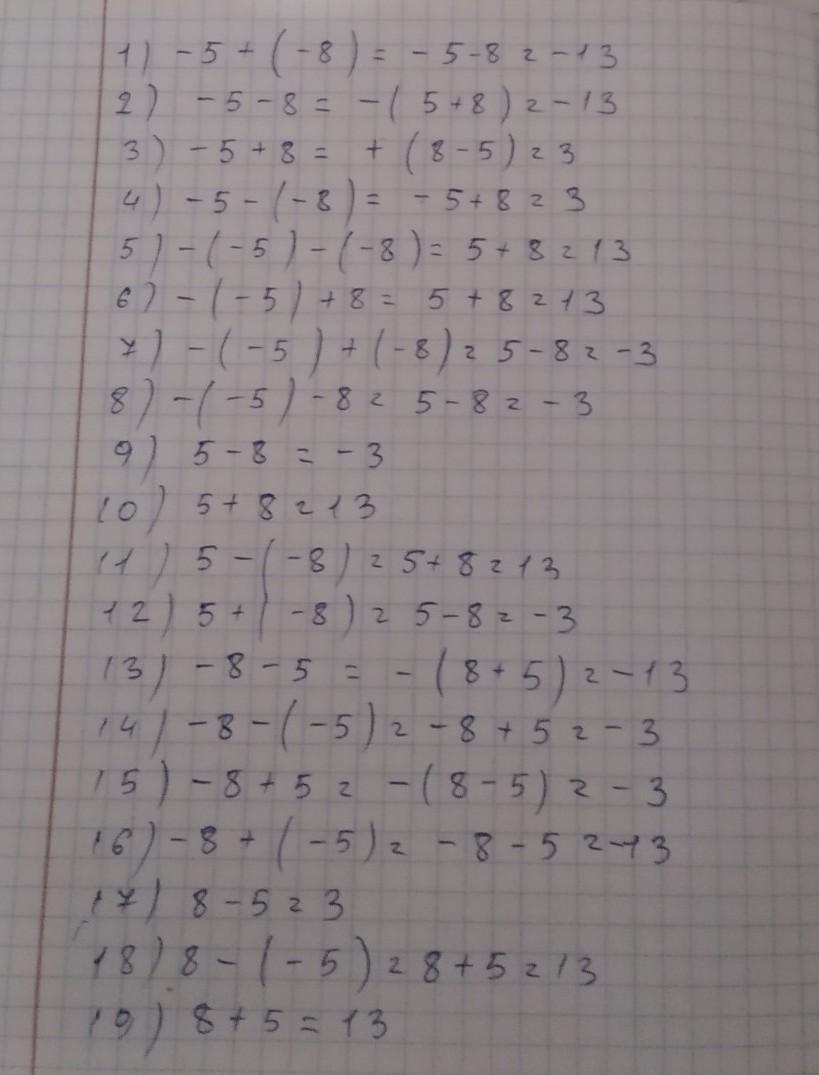 1) -5 + (-8) = -5-8 = -13
2) -5-8 = -(5+8) = -13
3) -5+8 = +(8-5) = 3
4) -5-(-8) = -5+8 = 3
5) -(-5)-(-8) = 5+8 = 13
6) -(-5)+8 = 5+8 = 13
7) -(-5)+(-8) = 5-8 = -3
8) -(-5)-8 = 5-8 = -3
9) 5-8 = -3
10) 5+8 = 13
11) 5-(-8) = 5+8 = 13
12) 5+(-8) = 5-8 = -3
13) -8-5 = -(8+5) = -13
14) -8-(-5) = -8+5 = -3
15) -8+5 = -(8-5) = -3
16) -8+(-5) = -8-5 = -13
17) 8-5 = 3
18) 8-(-5) = 8+5 = 13
19) 8+5 = 13